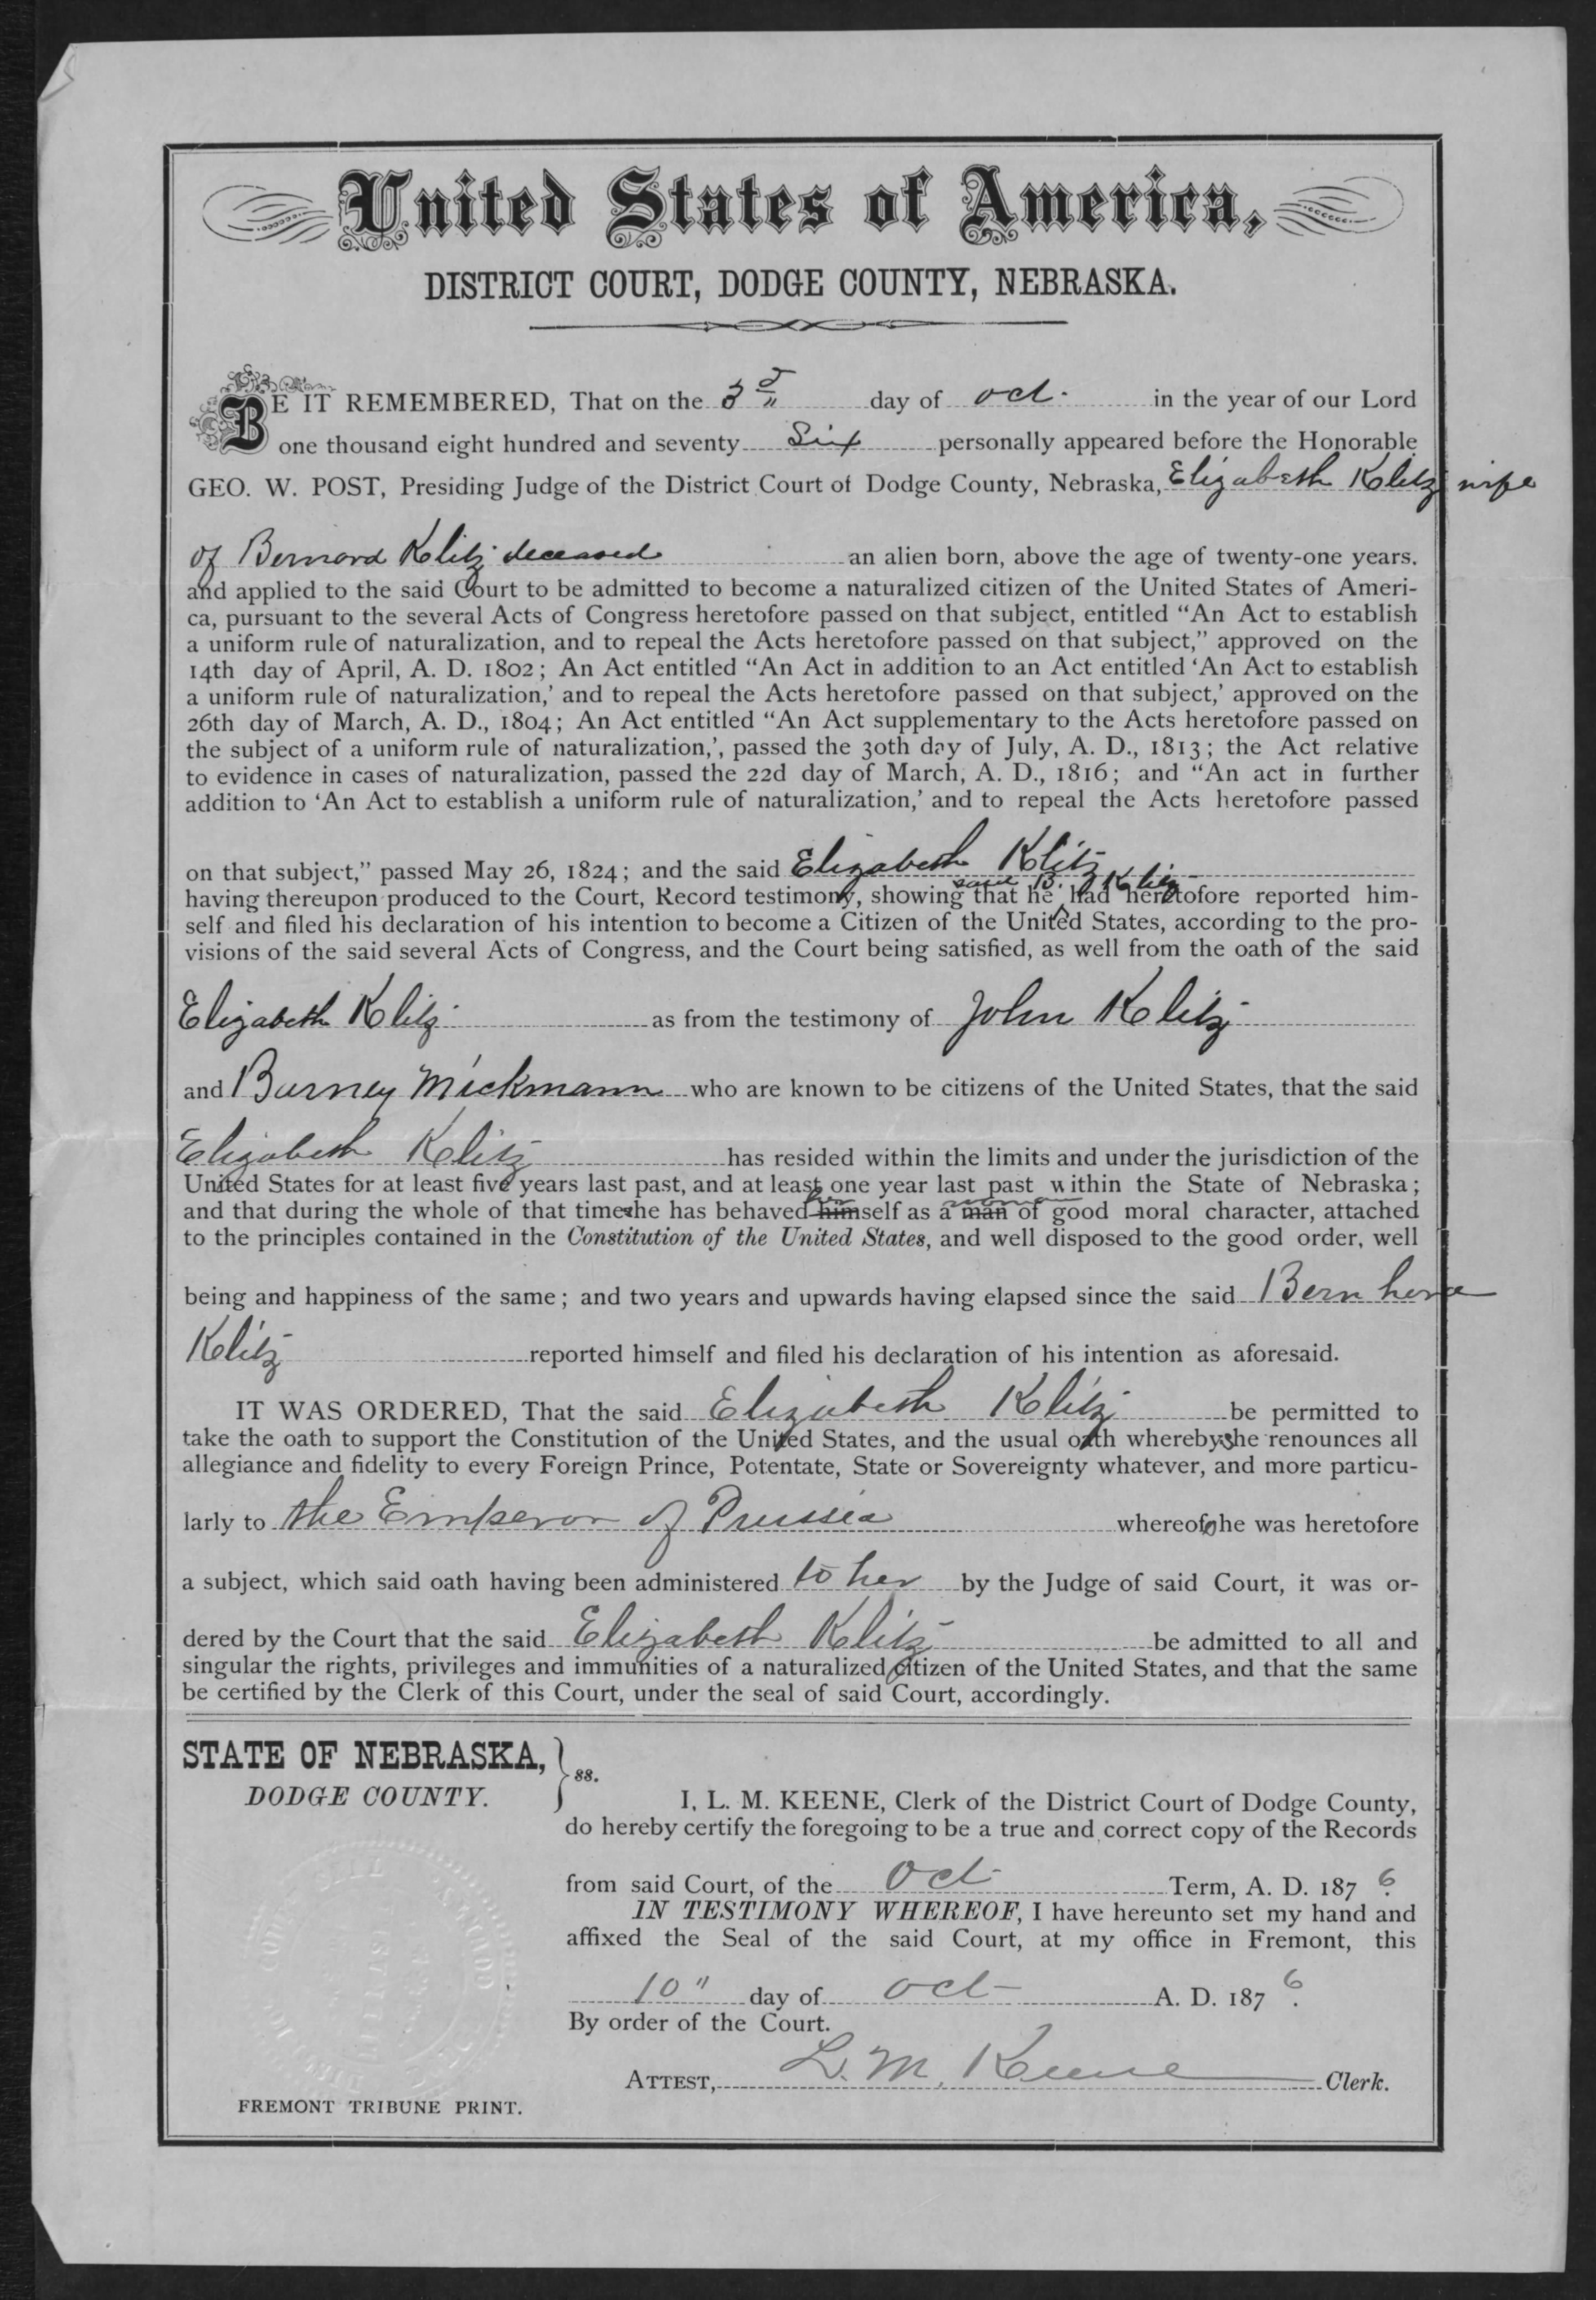 United States of America,
DISTRICT COURT, DODGE COUNTY, NEBRASKA.
BE IT REMEMBERED, That on the 3d day of Oct. in the year of our Lord
one thousand eight hundred and seventy Six personally appeared before the Honorable
GEO. W. POST, Presiding Judge of the District Court of Dodge County, Nebraska, Elizabeth Klitz wife
of Bernard Klitz deceased an alien born, above the age of twenty-one years.
and applied to the said Court to be admitted to become a naturalized citizen of the United States of Ameri-
ca, pursuant to the several Acts of Congress heretofore passed on that subject, entitled “An Act to establish
a uniform rule of naturalization, and to repeal the Acts heretofore passed on that subject,” approved on the
14th day of April, A. D. 1802; An Act entitled “An Act in addition to an Act entitled ‘An Act to establish
a uniform rule of naturalization,’ and to repeal the Acts heretofore passed on that subject,’ approved on the
26th day of March, A. D., 1804; An Act entitled “An Act supplementary to the Acts heretofore passed on
the subject of a uniform rule of naturalization,’, passed the 30th day of July, A. D., 1813; the Act relative
to evidence in cases of naturalization, passed the 22d day of March, A. D., 1816; and “An act in further
addition to ‘An Act to establish a uniform rule of naturalization,’ and to repeal the Acts heretofore passed
on that subject,” passed May 26, 1824; and the said Elizabeth Klitz
said B. Klitz
having thereupon produced to the Court, Record testimony, showing that he had heretofore reported him-
self and filed his declaration of his intention to become a Citizen of the United States, according to the pro-
visions of the said several Acts of Congress, and the Court being satisfied, as well from the oath of the said
Elizabeth Klitz as from the testimony of John Klitz
and Burney Mickmann who are known to be citizens of the United States, that the said
Elizabeth Klitz has resided within the limits and under the jurisdiction of the
United States for at least five years last past, and at least one year last past within the State of Nebraska;
her woman
and that during the whole of that time she has behaved himself as a man of good moral character, attached
to the principles contained in the Constitution of the United States, and well disposed to the good order, well
being and happiness of the same; and two years and upwards having elapsed since the said Bernhard
Klitz reported himself and filed his declaration of his intention as aforesaid.
IT WAS ORDERED, That the said Elizabeth Klitz be permitted to
take the oath to support the Constitution of the United States, and the usual oath whereby she renounces all
allegiance and fidelity to every Foreign Prince, Potentate, State or Sovereignty whatever, and more particu-
larly to the Emperor of Prussia whereof she was heretofore
a subject, which said oath having been administered to her by the Judge of said Court, it was or-
dered by the Court that the said Elizabeth Klitz be admitted to all and
singular the rights, privileges and immunities of a naturalized citizen of the United States, and that the same
be certified by the Clerk of this Court, under the seal of said Court, accordingly.
STATE OF NEBRASKA, } ss.
DODGE COUNTY.
I, L. M. KEENE, Clerk of the District Court of Dodge County,
do hereby certify the foregoing to be a true and correct copy of the Records
from said Court, of the Oct Term, A. D. 187 6.
IN TESTIMONY WHEREOF, I have hereunto set my hand and
affixed the Seal of the said Court, at my office in Fremont, this
10" day of Oct A. D. 187 6.
By order of the Court.
ATTEST, L. M. Keene Clerk.
FREMONT TRIBUNE PRINT.